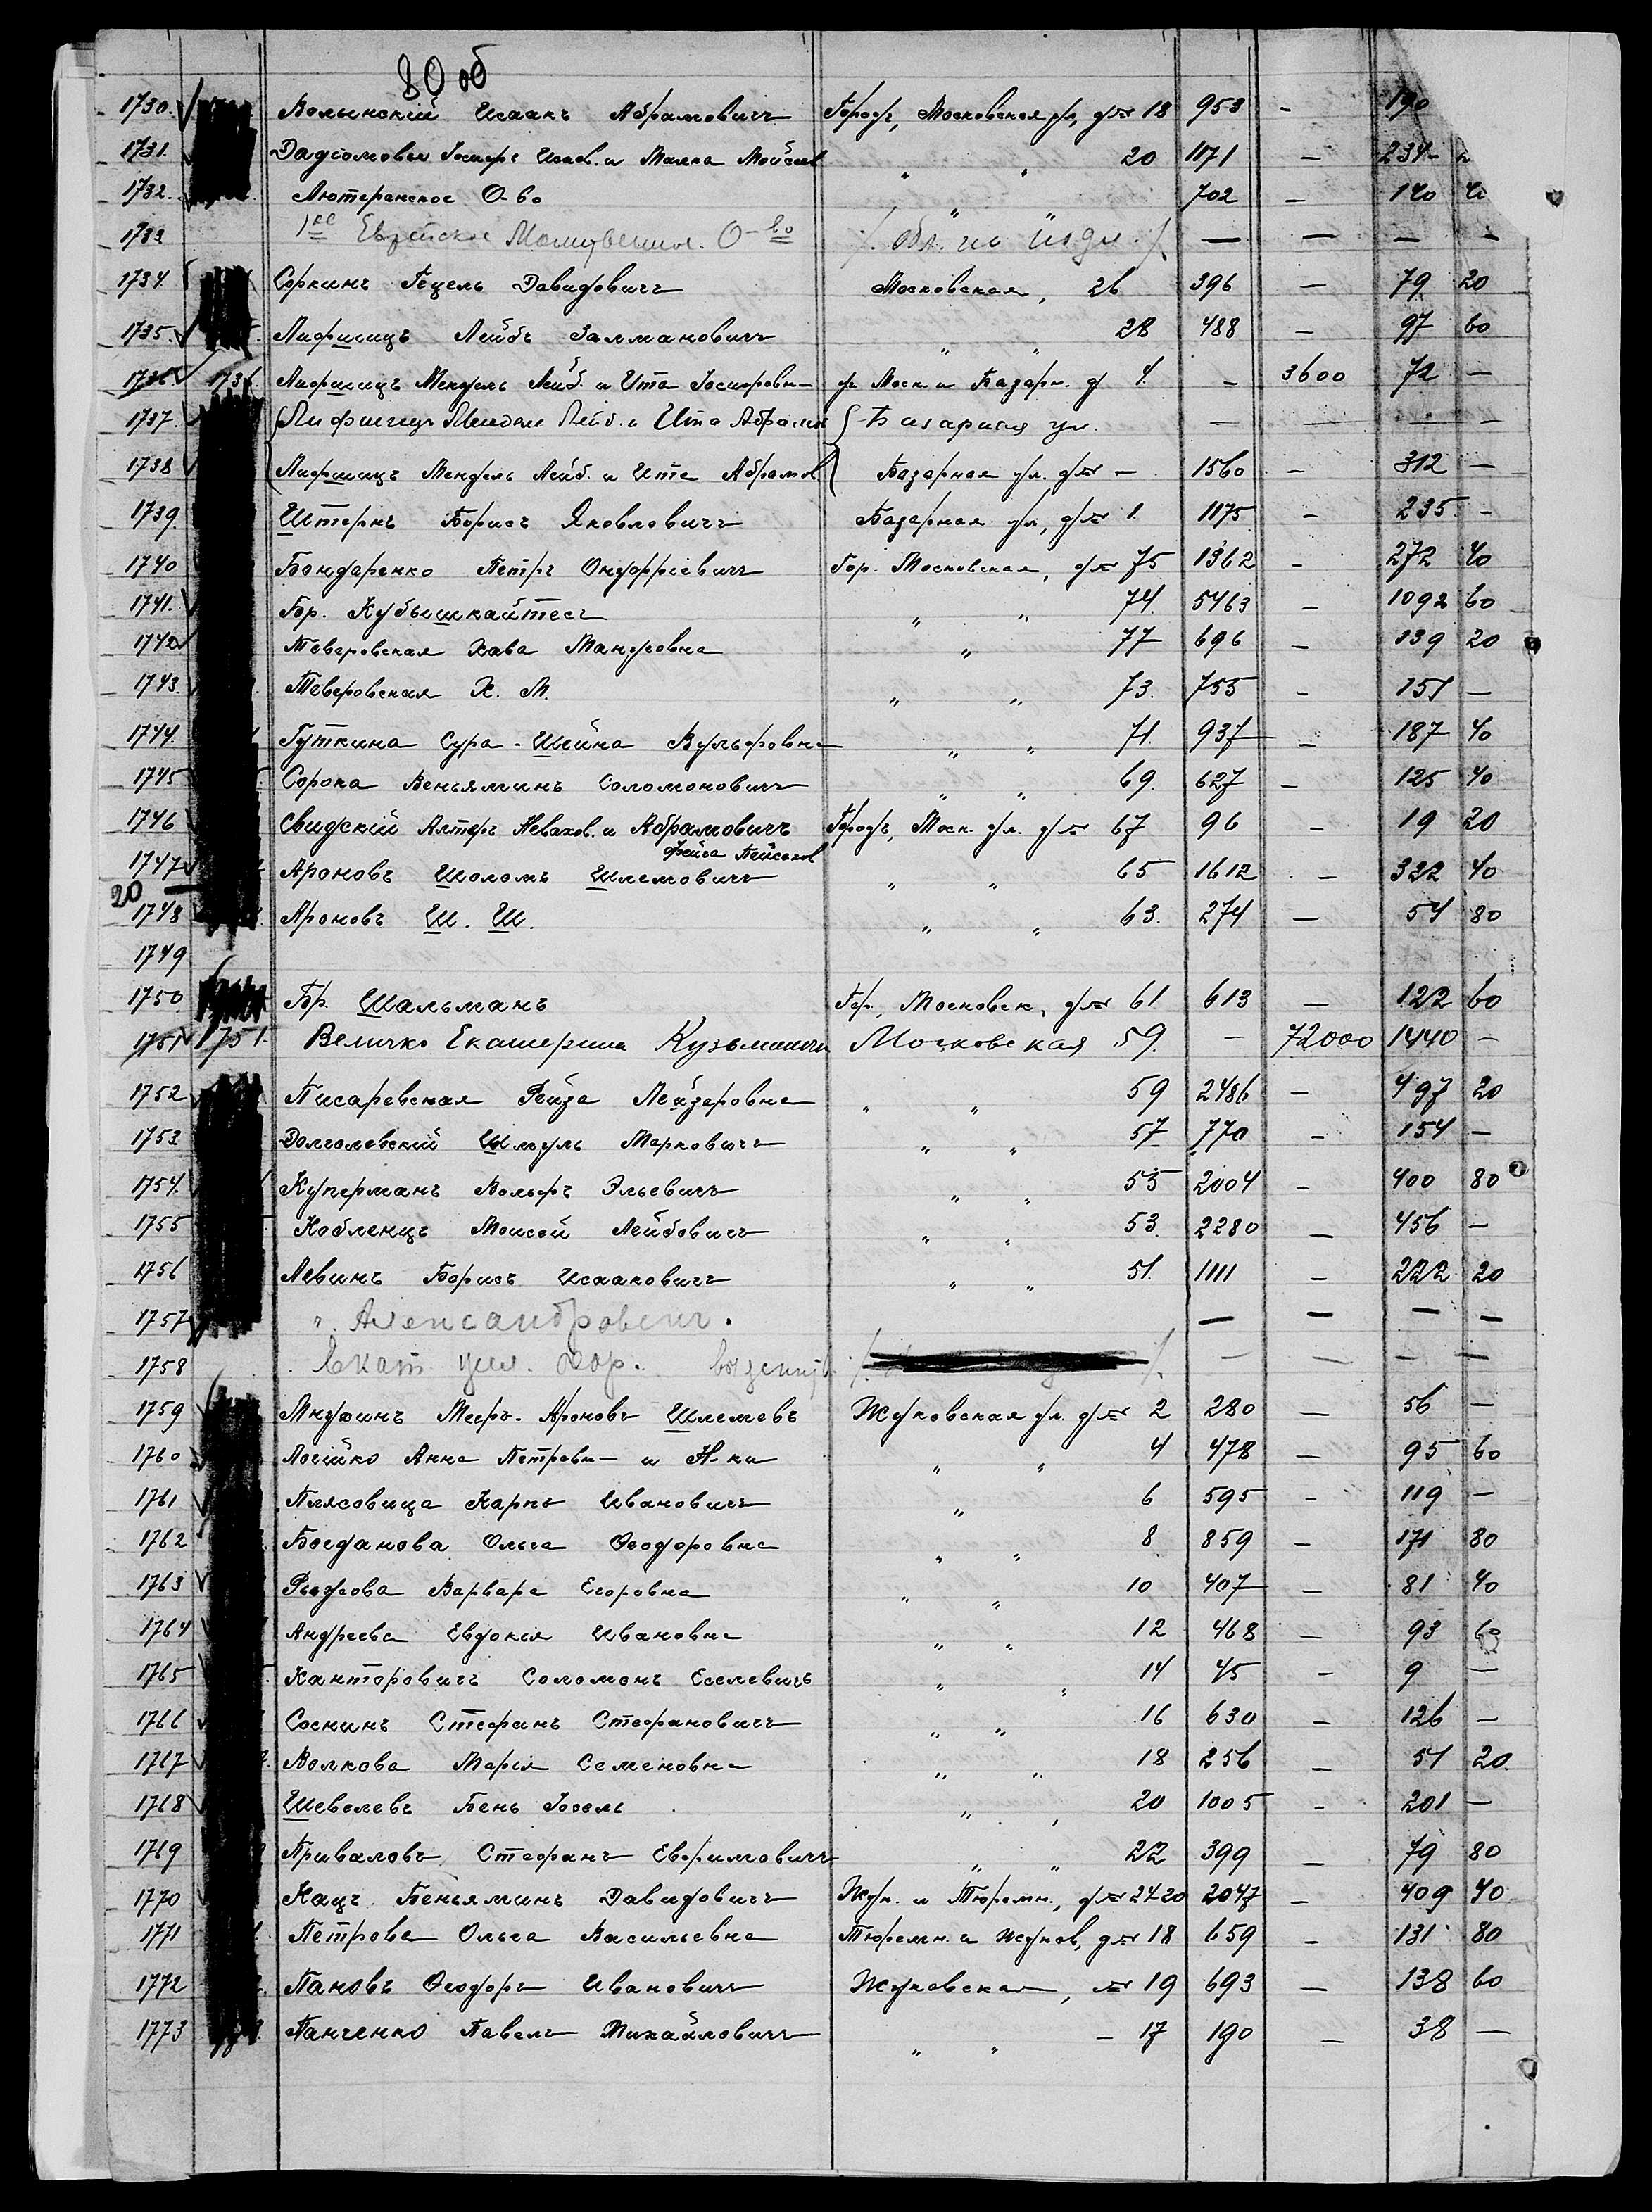 80 об
1730. Волынскій Исаакъ Абрамовичъ Городъ, Московская ул, д№ 18 953 - 190
1731. Іосифъ Исаак. и Малка Мойсеев. " " 20 1171 - 234 - 2
1732. Лютеранское О-во " " 702 - 140 40
1733 1ое Еврейское О-во — — — —
1734. Соркинъ Гецель Давидовичъ Московская, 26 396 — 79 20
1735. Лифшицъ Лейбъ Залмановичъ " " 28 488 - 97 60
1736 1736. Лифшицъ Мендель Лейб. и Ита Іосифовн- уг. Моск. и Базарн. д. 4. - 3600 72 —
1737. Лифшицъ Мендель Лейб. и Ита Абрамов Базарная ул. — — — -
1738 Лифшицъ Мендель Лейб. и Ита Абрамов. Базарная ул. д№ — 1560 - 312 —
1739 Штернъ Борисъ Яковлевичъ Базарная ул, д№ 1. 1175 - 235 -
1740 Бондаренко Петръ Онуфріевичъ Гор. Московская, д№ 75 1362 - 272 40
1741. Бр. Кубышкайтесъ " " 74. 5463 - 1092 60
1742 Теверовская Хава Мануховна " 77 696 - 139 20
1743. Теверовская Х. М. " " 73. 755 - 151 —
1744. Гуткина Сура-Шейна Вульфовна " " 71. 937 - 187 40
1745 Сорока Веньяминъ Соломоновичъ " " 69. 627 - 125 40
1746 Свидскій Алтеръ Невахов. и Абрамовичъ Городъ, Моск. ул. д№ 67 96 - 19 20
Фейга Пейсахов
1747 Ароновъ Шоломъ Шлемовичъ " " 65 1612 - 322 40
20
1748 Ароновъ Ш. Ш. " " 63. 274 — 54 80
1749
1750 Бр. Шальманъ Гор., Московск, д№ 61 613 — 122 60
1751 1751. Величко Екатерина Кузьминична Московская 59. - 72000 1440 -
1752 Писаревская Рейза Лейзеровна " " 59 2486 - 497 20
1753 Долголевскій Шмуль Марковичъ " " 57 770 - 154 —
1754. Куперманъ Вольфъ Эльевичъ " " 55 2004 - 400 80
1755 Кобленцъ Моисей Лейбовичъ " " 53. 2280 — 456 —
1756 Левинъ Борисъ Исааковичъ " " 51. 1111 - 222 20
1757 " Александровичъ. — — — —
1758 Екат. дор. — — — —
1759 Мнухинъ Мееръ-Ароновъ Шлемовъ Жуковская ул. д№ 2 280 — 56 —
1760 Анна Петровн- и Н-ки " " 4 478 — 95 60
1761 Плясовица Карпъ Ивановичъ " 6 595 - 119 —
1762 Богданова Ольга Ѳеодоровна " " 8 859 - 171 80
1763 Рыжова Варвара Егоровна " " 10 407 - 81 40
1764 Андреева Евдокія Ивановна " " 12 468 — 93 60
1765 Канторовичъ Соломонъ Еселевичъ " " 14 45 - 9 —
1766 Соснинъ Стефанъ Стефановичъ " " 16 630 - 126 —
1767 Волкова Марія Семеновна " " 18 256 — 51 20.
1768 Шевелевъ Бень Іосель " " 20 1005 - 201 —
1769 Приваловъ Стефанъ Ефимовичъ " " 22 399 — 79 80
1770 Кацъ Беньяминъ Давидовичъ Жук. и Тюремн., д№ 24-20 2047 - 409 40
1771 Петрова Ольга Васильевна Тюремн. и Жуков, д№ 18 659 - 131 80
1772 Пановъ Ѳеодоръ Ивановичъ Жуковская, № 19 693 — 138 60
1773 Панченко Павелъ Михайловичъ " " - 17 190 — 38 —